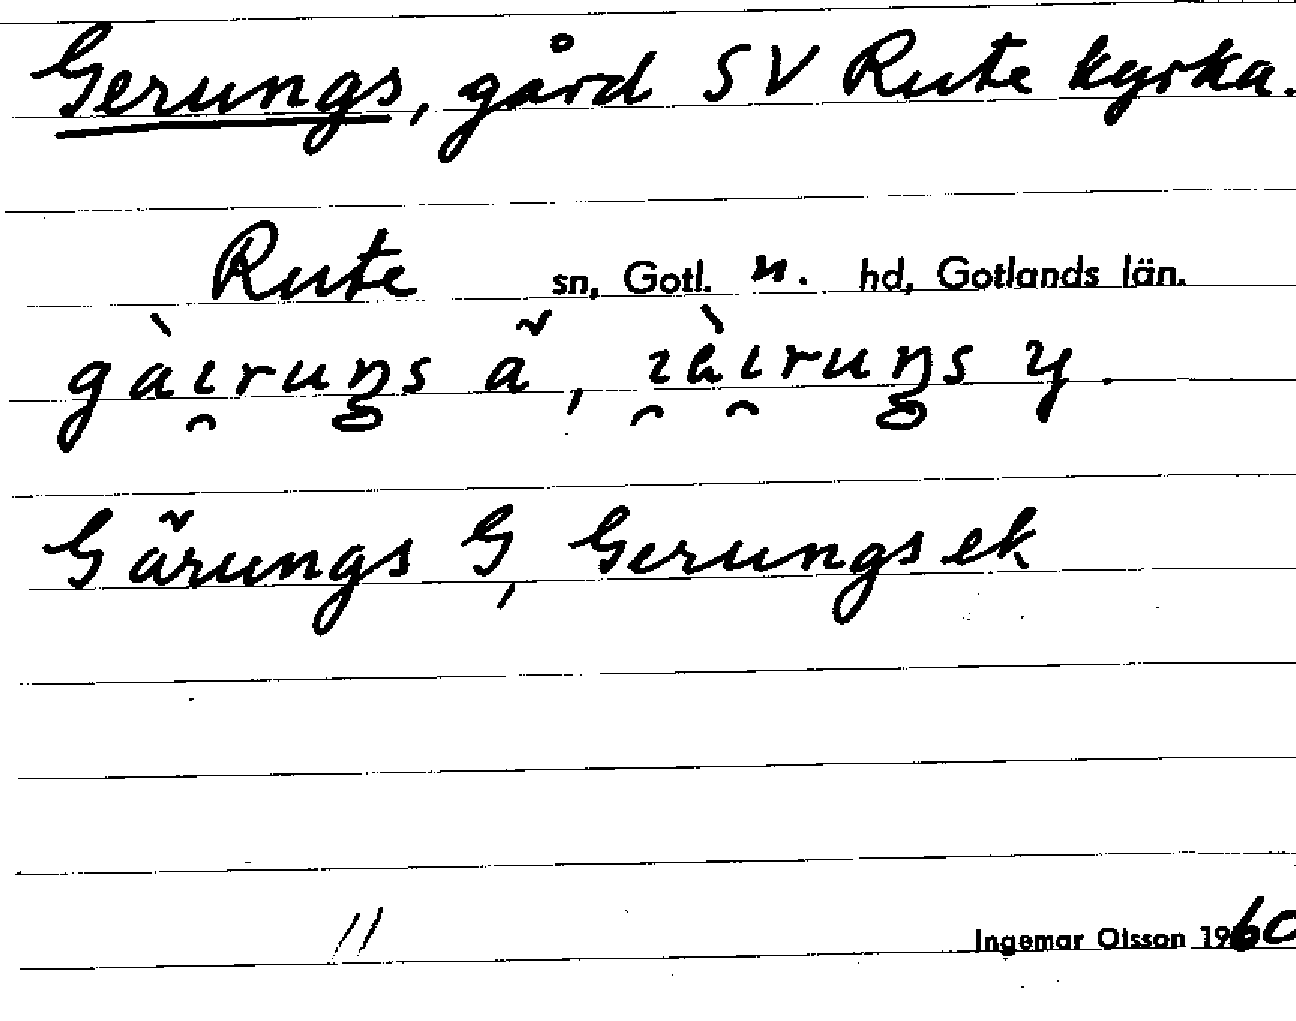 Gerungs, gård SV Rute kyrka.
Rute sn, Gotl. n. hd, Gotlands län.
gàı̯ruŋs ä̆, ı̯àı̯ruŋs y.
Gä̆rungs G, Gerungs ek
//
Ingemar Olsson 1960